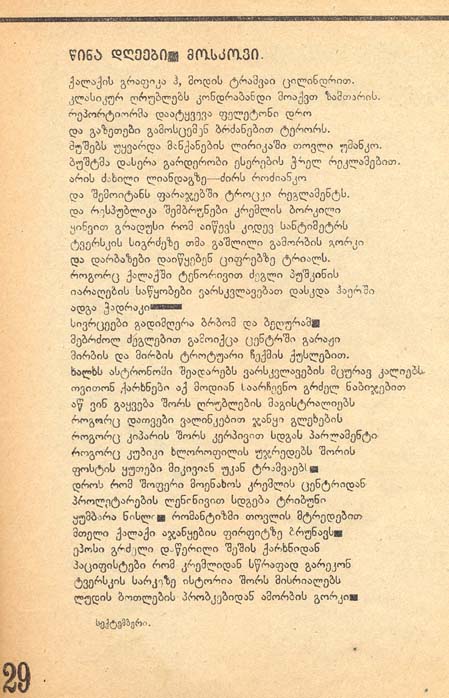 წინა დღეები მოსკოვი.
ქალაქის გრაფიკა ჰ, მოდის ტრამვაი ცილინდრით.
კლასიკურ ღრუბლებს კონდრაბანდი მოაქვთ ზამთარის.
რეპორტიორმა დაატყვევა ფელეტონი დრო
და გაზეთები გამოსცემენ ბრძანებით ტერორს.
მუშებს უყვარდა მანქანების ლირიკაში თოვლი უმანკო.
ბუშტმა დასერა გარდერობი ესერების ჭრელ რეკლამებით.
არის ძახილი ლიანდაგზე—ძირს როძიანკო
და შემოიტანს ფარაჯებში ტროცკი რეგლამენტს.
და რესპუბლიკა შემბრუნები კრემლის ბორკილი
ყინვით გრადუსი რომ აიწევს კიდევ სანტიმეტრს
ტვერსკის სიგრძეზე თმა გაშლილი გამორბის გორკი
და დარბაზები დაიწყებენ ციფრებზე ტრიალს.
როგორც ქალაქში ტენორივით ძეგლი პუშკინის
იარაღების საწყობები ვარსკვლავებათ დასკდა ჰაერში
ადგა ჭადრაკი
სივრცეები გადიმღერა ბრბომ და ბეღურამ
მებრძოლ ძეგლებით გამოიქცა ცენტრში გარაჟი
მირბის და მირბის ტროტუარი ჩექმის ქუსლებით.
ხალხს ასტრონომი შეადარებს ვარსკვლავების მცურავ კალიებს.
თვითონ ქარხნები აქ მოდიან საარჩევნო გრძელ ნაბიჯებით
აწ ვინ გაყვება შორს ღრუბლების მაგისტრალიებს
როგორც დათვები ვალინკებით ჯანყი გლეხების
როგორც კიპარის შორს კერპივით სდგას პარლამენტი
როგორც კუბიკი ხლოროფილის უჯრედებს შორის
ფოსტის ყუთები მიკივიან უკან ტრამვაებს
დროს რომ შოფერი მოენახოს კრემლის ცენტრიდან
პროლეტარების ლენინივით სდგება ტრიბუნი
ყუმბარა ნისლი რომანტიზმი თოვლის მტრედებით
მთელი ქალაქი აჯანყების ფირფიტზე ბრუნავს
ეპოსი გრძელი დაწერილი შეშის ქარხნიდან
პაციფისტები რომ კრემლიდან სწრაფად გარეკონ
ტვერსკის სარკეზე ისტორია შორს მისრიალებს
ლუდის ბოთლების პრობკებიდან ამორბის გორკი
სექტემბერი.
29